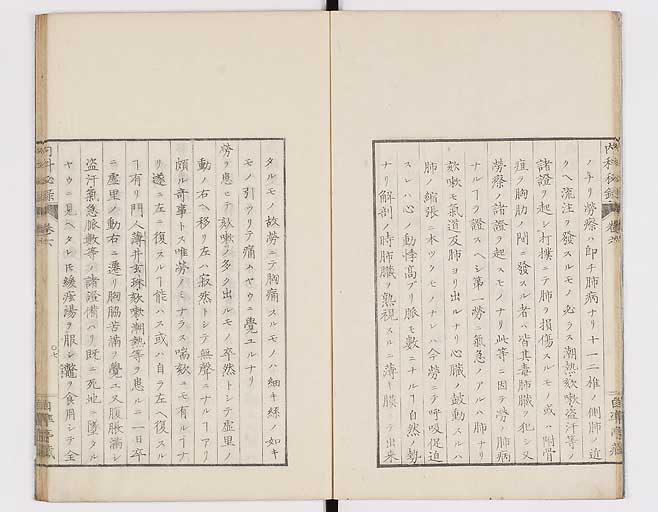 内科秘録 卷六
ノナリ勞瘵ハ卽チ肺病ナリ十一二椎ノ側肺ノ近
クヘ流注ヲ發スルモノ必ラス潮熱欬嗽盗汗等ノ
諸證ヲ起シ打撲ニテ肺ヲ損傷スルモノ或ハ附骨
疽ヲ胸肋ノ間ニ發スル者ハ皆其毒肺臟ヲ犯シ又
勞瘵ノ諸證ヲ起スモノナリ此等ニ因テ勞ノ肺病
ナルヿヲ證スヘシ第一勞ニ氣急ノアルハ肺ナリ
欬嗽モ氣道及肺ヨリ出ルナリ心臟ノ鼓動スルハ
肺ノ縮張ニ本ツクモノナレハ今勞ニテ呼吸促迫
スレハ心ノ動悸高ブリ脈モ數ニナルヿ自然ノ勢
ナリ解剖ノ時肺臟ヲ熟視スルニ薄キ膜ニテ出來
自準亭藏
タルモノ故勞ニテ胸痛スルモノハ細キ絲ノ如キ
モノ引ツリテ痛ムヤウニ覺ユルナリ
勞ヲ患ヒテ欬嗽ノ多ク出ルモノ卒然トシテ虚里ノ
動ノ右ヘ移リ左ハ寂然トシテ無聲ニナルヿアリ
頗ル奇事トス唯勞ノミナラス喘欬ニモ有ルヿナ
リ遂ニ左ニ復スルヿ能ハス或ハ自ラ左ヘ復スル
ヿ有リ門人薄井玄琳欬嗽潮熱等ヲ患ル二一日卒
ニ虚里ノ動右ニ遷リ胸脇苦滿ヲ覺ユ又腹脹滿シ
盗汗氣急脈數等ノ諸證備ハリ既ニ死地ニ墮タル
ヤウニ見ヘタレ𪜈緩痃湯ヲ服シ鼈ヲ食用シテ全
内科秘録 卷六
自準亭藏